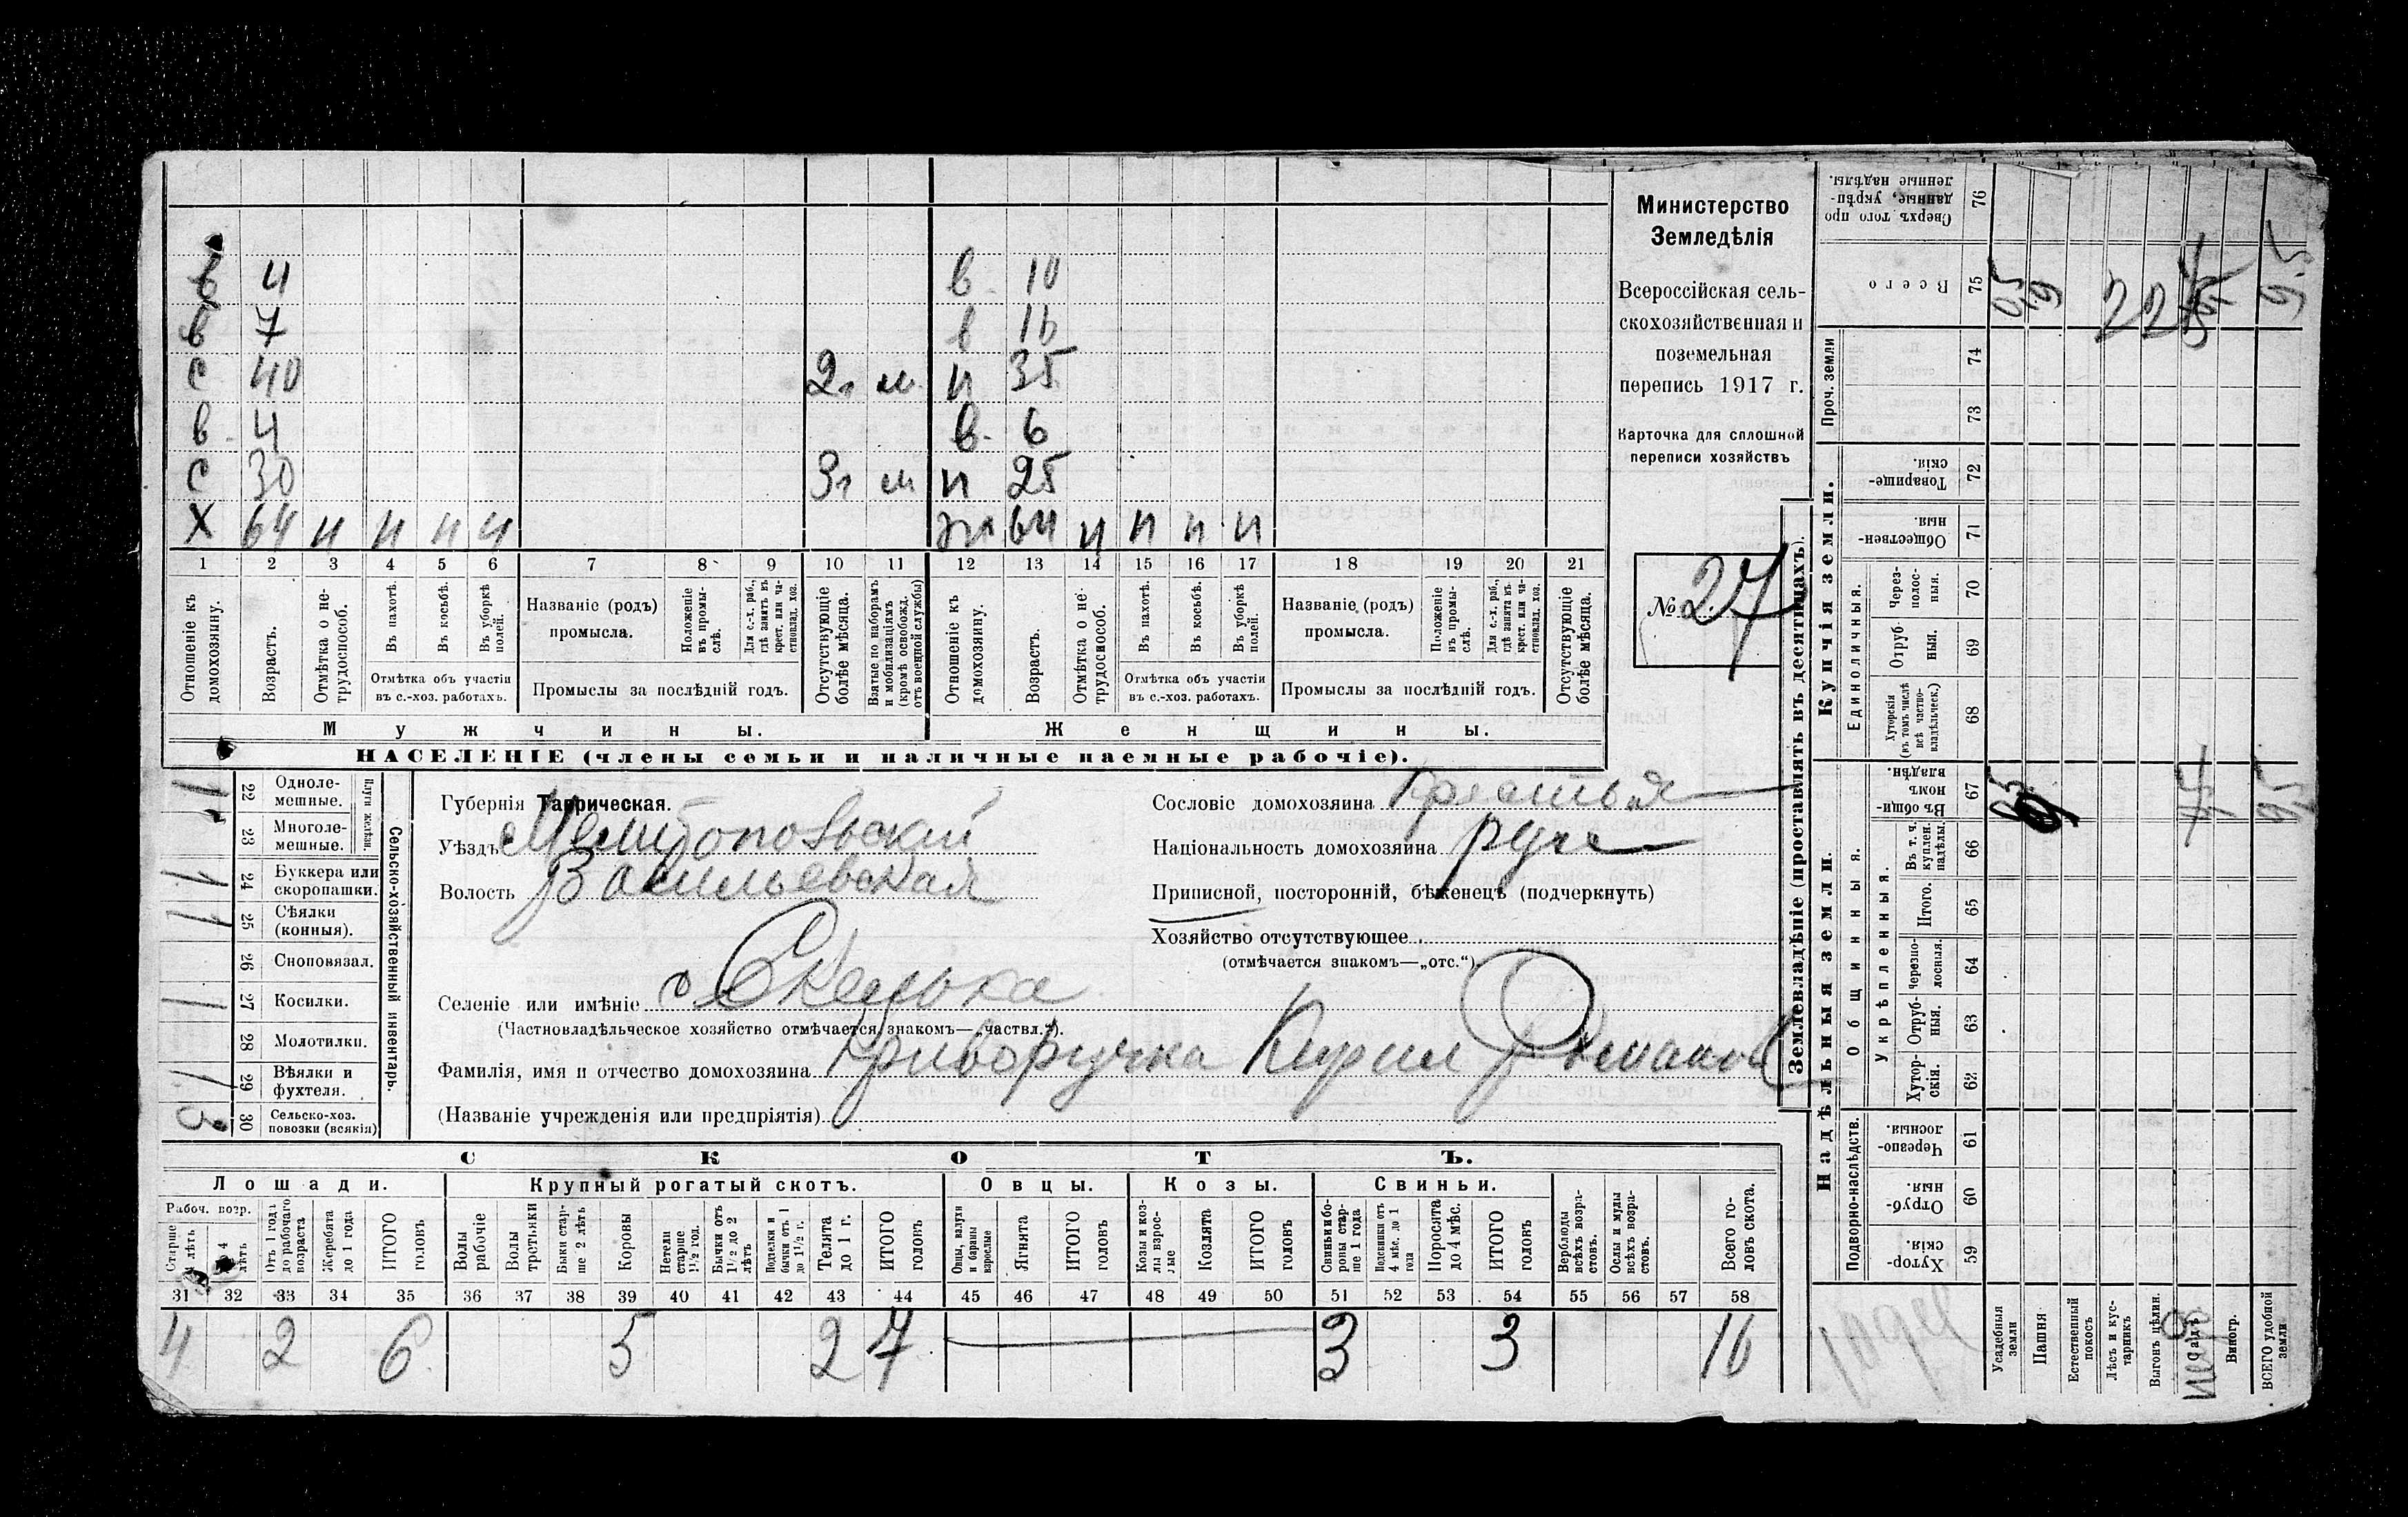 в 4 в 10
в 7 в 16
с 40 2г м н 35
в 4 в 6
с 30 3г м н 25
Х 64 н н н н ж 64 н н н н
1 2 3 4 5 6 7 8 9 10 11 12 13 14 15 16 17 18 19 20 21
Отношеніе къ домохозяину.
Возрастъ.
Отмѣтка о нетрудоспособ.
Въ пахотѣ.
Въ косьбѣ.
Въ уборкѣ полей.
Отмѣтка объ участіи
въ с.-хоз. работахъ.
Названіе (родъ)
промысла.
Положеніе въ промыслѣ.
Для с.-х. раб., гдѣ занятъ въ крест. или частновлад. хоз.
Промыслы за послѣдній годъ.
Отсутствующіе болѣе мѣсяца.
Взятые по наборамъ и мобилизаціямъ (кромѣ освобожд. отъ военной службы)
Отношеніе къ домохозяину.
Возрастъ.
Отмѣтка о нетрудоспособ.
Въ пахотѣ.
Въ косьбѣ.
Въ уборкѣ полей.
Отмѣтка объ участіи
въ с.-хоз. работахъ.
Названіе (родъ)
промысла.
Положеніе въ промыслѣ.
Для с.-х. раб., гдѣ занята въ крест. или частновлад. хоз.
Промыслы за послѣдній годъ.
Отсутствующіе болѣе мѣсяца.
Мужчины. Женщины.
НАСЕЛЕНІЕ (члены семьи и наличные наемные рабочіе).
Министерство
Земледѣлія
Всероссійская сель-
скохозяйственная и
поземельная
перепись 1917 г.
Карточка для сплошной
переписи хозяйствъ
№ 27
Сельско-хозяйственный инвентарь.
1 22 Однолемешные.
23 Многолемешные.
1 1 24 Буккера или скоропашки.
1 1 25 Сѣялки (конныя).
26 Сноповязал.
1 27 Косилки.
28 Молотилки.
1 29 Вѣялки и фухтеля.
3 30 Сельско-хоз. повозки (всякія)
Губернія Таврическая.
Уѣздъ Мелитопольский
Волость Васильевская
Селеніе или имѣніе с Скелька
(Частновладѣльческое хозяйство отмѣчается знакомъ—„частвл.“).
Фамилія, имя и отчество домохозяина Криворучка Кирил Романов
(Названіе учрежденія или предпріятія)
Сословіе домохозяина крестья
Національность домохозяина рус
Приписной, посторонній, бѣженецъ (подчеркнуть)
Хозяйство отсутствующее
(отмѣчается знакомъ—„отс.“)
СКОТЪ.
Лошади. Крупный рогатый скотъ. Овцы. Козы. Свиньи.
Рабоч. возр.
Отъ 1 года до рабочаго возраста
Жеребята до 1 года
ИТОГО головъ
Волы рабочіе
Волы третьяки
Быки старше 2 лѣтъ
Коровы
Нетели старше 1½ год.
Бычки отъ 1½ до 2 лѣтъ
Подтелки и бычки отъ 1 до 1½ г.
Телята до 1 г.
ИТОГО головъ
Овцы, валухи и бараны взрослые
Ягнята
ИТОГО головъ
Козы и козлы взрослые
Козлята
ИТОГО головъ
Свиньи и боровы старше 1 года
Подсвинки отъ 4 мѣс. до 1 года
Поросята до 4 мѣс.
ИТОГО головъ
Верблюды всѣхъ возрастовъ.
Ослы и мулы всѣхъ возрастовъ.
Всего головъ скота.
31 32 33 34 35 36 37 38 39 40 41 42 43 44 45 46 47 48 49 50 51 52 53 54 55 56 57 58
4 2 6 5 2 7 3 3 16
Землевладѣніе (проставлять въ десятинахъ).
Надѣльныя земли. Купчія земли.
Проч. земли
Общинныя.
Укрѣпленныя.
Единоличныя.
Подворно-наслѣдств.
Сверхъ того проданные, укрѣпленные надѣлы. 76
Всего 75
74
73
Товарищескія. 72
Общественныя. 71
Черезполосныя. 70
Отрубныя. 69
Хуторскія (въ томъ числѣ всѣ частновладѣльческ.) 68
Въ общинномъ владѣн. 67
Въ т. ч. куплен. надѣлы. 66
Итого. 65
Черезполосныя. 64
Отрубныя. 63
Хуторскія. 62
Черезполосныя. 61
Отрубныя. 60
Хуторскія. 59
Усадебныя земли
Пашня
Естественный покосъ
Лѣсъ и кустарникъ
Выгонъ цѣлин.
Виногр.
ВСЕГО удобной земли